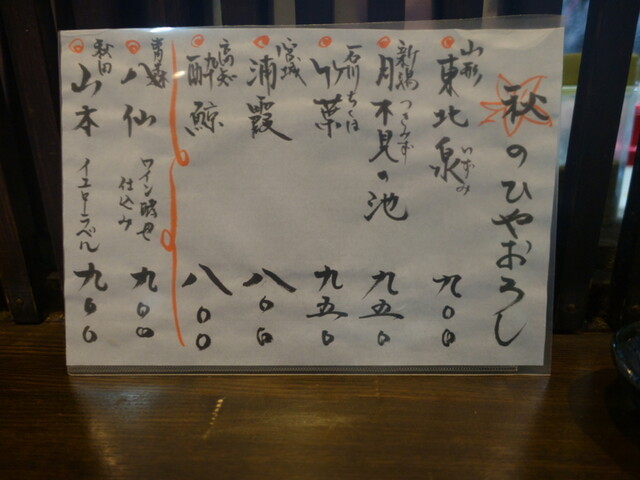 秋のひやおろし
山形 東北泉 いずみ 九〇〇
新潟 月不見の池 つきみず 九五〇
石川 竹葉 ちくは 九五〇
宮城 浦霞 八〇〇
高知 酔鯨 八〇〇
青森 八仙 ワイン酵母 仕込み 九〇〇
秋田 山本 イエローラベル 九〇〇